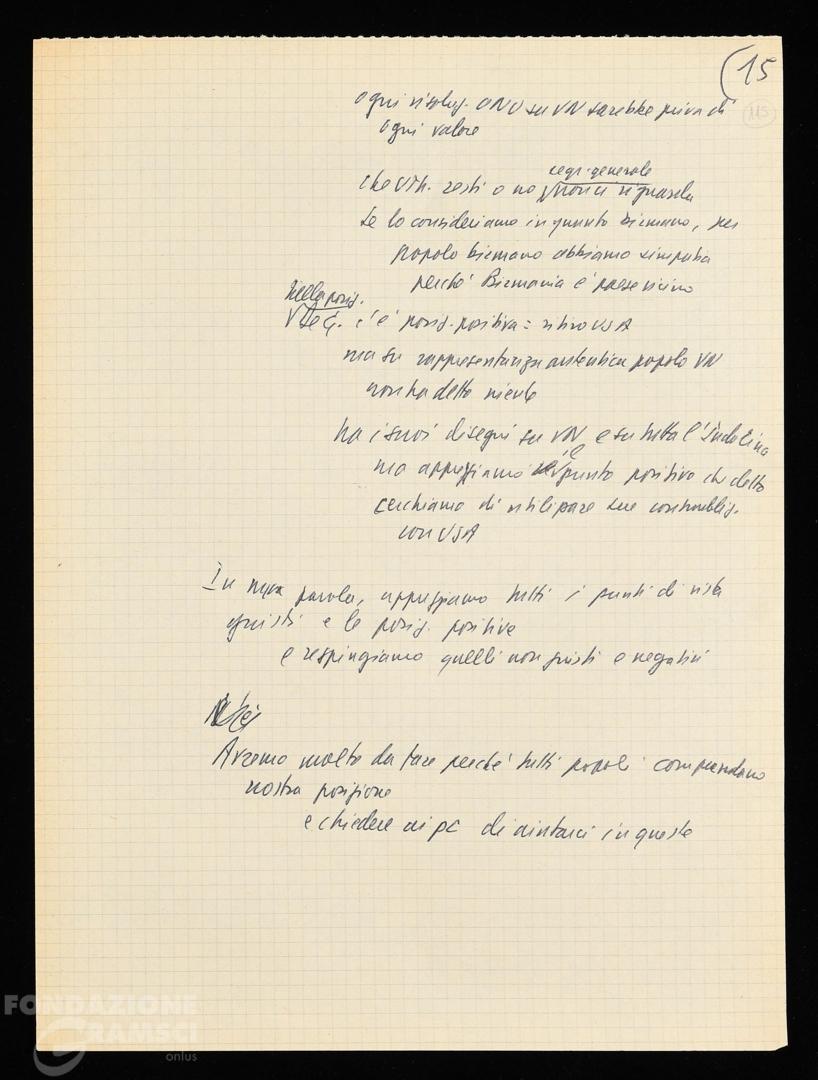 (15
115
ogni risoluz. ONU su VN sarebbe priva di
ogni valore
segr. generale
che UTh. resti o no non ci riguarda
se lo consideriamo in quanto birmano, per
popolo birmano abbiamo simpatia
perché Birmania è paese vicino
Nella posiz.
c'è posiz. positiva = ritiro USA
ma su rappresentanza autentica popolo VN
non ha detto niente
ha i suoi disegni su VN e su tutta l'Indocina
ma appoggiamo il punto positivo che detto
cerchiamo di utilizzare sue contraddiz.
con USA
In una parola, appoggiamo tutti i punti di vista
giusti e le posiz. positive
e respingiamo quelli non giusti e negativi
Avremo molto da fare perché tutti popoli comprendano
nostra posizione
e chiedere ai pc di aiutarci in queste
FONDAZIONE
GRAMSCI
onlus